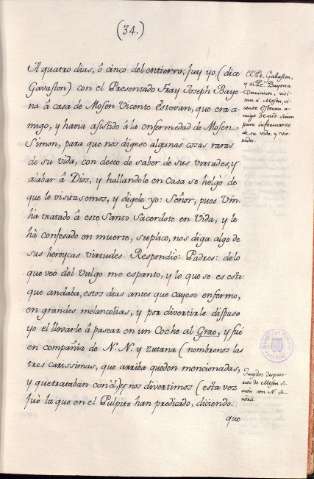 (34.)
A quatro dias, ô cinco del entierro, fuy yo (dice
Gavaston) con el Presentado Fray Joseph Baye
na â casa de Mosen Vicente Estevan, que era a
migo, y havia asistido â la enfermedad de Mosen
Simon, para que nos digese algunas cosas raras
de su vida, con deseo de saber de sus virtudes, y
alabar â Dios, y hallandole en casa se holgó de
que le visitasemos, y digele yo: Señor, pues Vm
ha tratado â este Santo Sacerdote en vida, y le
hâ confesado en muerte, suplico, nos diga algo de
sus heroycas virtudes. Respondio: Padres: delo
que veo del Vulgo me espanto, y lo que se es este
que andaba, estos dias antes que cayese enfermo,
en grandes melancolias, y pra divertirle dispuse
yo el llevarle â pasear en un Coche al Grao, y fué
en compañia de N. N. y zutana (nombrenos las
tres carissimas, que arriba quedan mencionadas,
y que trataban con el) y nos divertimos (esta voz
fuè la que en el Pulpito han predicado, diciendo:
que
El Pe. Gavaston,
y el Pe. Bayena
Dominicos, vi
tan â Mosen Vi
cente Estevan a
migo de
para informarse
de su vida, y vir
tudes.
de Mosen Si
mon con N. Se
ñora.